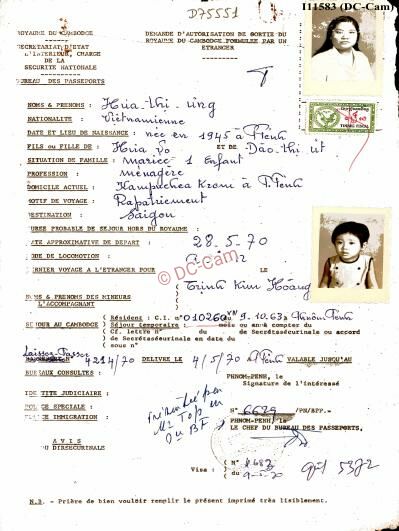 D75551
I11583 (DC-Cam)
ROYAUME DU CAMBODGE
SECRETARIAT D'ETAT
L'INTERIEUR, CHARGE
DE LA
SECURITE NATIONALE
BUREAU DES PASSEPORTS
DEMANDE D'AUTORISATION DE SORTIE DU
ROYAUME DU CAMBODGE FORMULEE PAR UN
ETRANGER
NOMS & PRENOMS : Hua-thi-ung
NATIONALITE : Vietnamienne
DATE ET LIEU DE NAISSANCE: née en 1945 à P.Penh
FILS ou FILLE DE : Hua Vo ET DE Dào-thi-ut
SITUATION DE FAMILLE : mariée 1 Enfant
PROFESSION : menagère
DOMICILE ACTUEL : Kampuchea Krom à P.Penh
MOTIF DE VOYAGE : Rapatriement
DESTINATION : Saigon
DUREE PROBABLE DE SEJOUR HORS DU ROYAUME :
DATE APPROXIMATIVE DE DEPART : 28.5.70
MODE DE LOCOMOTION :
DERNIER VOYAGE A L'ETRANGER POUR LE
© DC-Cam
NOMS & PRENOMS DES MINEURS
L'ACCOMPAGNANT
Trinh Kim Hoàng
SEJOUR AU CAMBODGE
( Résident : C.I. n° 010260 VN du 9.10.63 à Phnôm-Penh
( Séjour temporaire : mois ou an-à compter du
( Cf. lettre n° du de Secretaséenurain ou accord
de Secretaséenurain en date du
sous n°
Laissez-Passer
4214/70 DELIVRE LE 4/5/70 à P.Penh VALABLE JUSQU'AU
BUREAUX CONSULTES :
PHNOM-PENH, le
Signature de l'intéressé
IDENTITE JUDICIAIRE :
POLICE SPECIALE :
POLICE IMMIGRATION :
N° 6629 /PN/BPP.-
PHNOM-PENH, le
LE CHEF DU BUREAU DES PASSEPORTS,
AVIS
DU DIRSECURINALE
Visa : ( N°
( du
N.B. - Prière de bien vouloir remplir le présent imprimé très lisiblement.